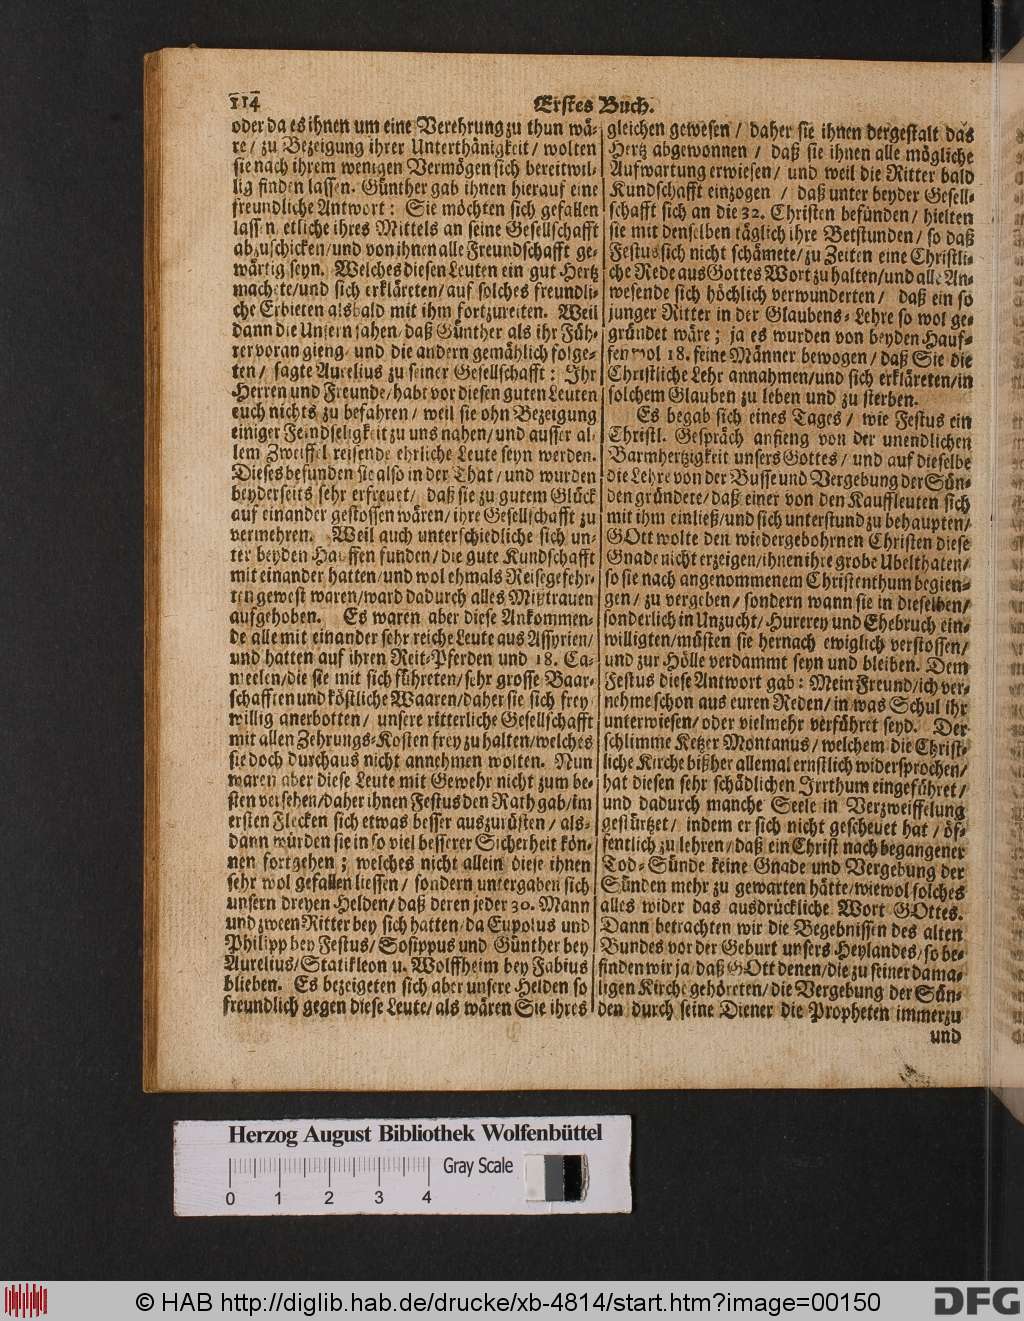 114
Erstes Buch.
oder da es ihnen um eine Verehrung zu thun wä-
re/ zu Bezeigung ihrer Unterthänigkeit/ wolten
sie nach ihrem wenigen Vermögen sich bereitwil-
lig finden lassen. Günther gab ihnen hierauf eine
freundliche Antwort: Sie möchten sich gefallen
lassen etliche ihres Mittels an seine Gesellschafft
abzuschicken/ und von ihnen alle Freundschafft ge-
wärtig seyn. Welches diesen Leuten ein gut Hertz
machete/ und sich erkläreten/ auf solches freundli-
che Erbieten alsbald mit ihm fortzureiten. Weil
dann die Unsern sahen/ daß Günther als ihr Füh-
rer voran gieng/ und die andern gemählich folge-
ten/ sagte Aurelius zu seiner Gesellschafft: Ihr
Herren und Freunde/ habt vor diesen guten Leuten
euch nichts zu befahren/ weil sie ohn Bezeigung
einiger Feindseligkeit zu uns nahen/ und ausser al-
lem Zweiffel reisende ehrliche Leute seyn werden.
Dieses befunden sie also in der That/ und wurden
beyderseits sehr erfreuet/ daß sie zu gutem Glück
auf einander gestossen wären/ ihre Gesellschafft zu
vermehren. Weil auch unterschiedliche sich un-
ter beyden Hauffen funden/ die gute Kundschafft
mit einander hatten/ und wol ehmals Reisegefehr-
ten gewest waren/ ward dadurch alles Mißtrauen
aufgehoben. Es waren aber diese Ankommen-
de alle mit einander sehr reiche Leute aus Assyrien/
und hatten auf ihren Reit-Pferden und 18. Ca-
meelen/ die sie mit sich führeten/ sehr grosse Baar-
schafften und köstliche Waaren/ daher sie sich frey-
willig anerbotten/ unsere ritterliche Gesellschafft
mit allen Zehrungs-Kosten frey zu halten/ welches
sie doch durchaus nicht annehmen wolten. Nun
waren aber diese Leute mit Gewehr nicht zum be-
sten versehen/ daher ihnen Festus den Rath gab/ im
ersten Flecken sich etwas besser auszurüsten/ als-
dann würden sie in so viel besserer Sicherheit kön-
nen fortgehen; welches nicht allein diese ihnen
sehr wol gefallen liessen/ sondern untergaben sich
unsern dreyen Helden/ daß deren jeder 30. Mann
und zween Ritter bey sich hatten/ da Eupolus und
Philipp bey Festus/ Sosippus und Günther bey
Aurelius/ Statikleon u. Wolffheim bey Fabius
blieben. Es bezeigeten sich aber unsere Helden so
freundlich gegen diese Leute/ als wären Sie ihres
gleichen gewesen/ daher sie ihnen dergestalt das
Hertz abgewonnen/ daß sie ihnen alle mögliche
Aufwartung erwiesen/ und weil die Ritter bald
Kundschafft einzogen/ daß unter beyder Gesell-
schafft sich an die 32. Christen befünden/ hielten
sie mit denselben täglich ihre Betstunden/ so daß
Festus sich nicht schämete/ zu Zeiten eine Christli-
che Rede aus Gottes Wort zu halten/ und alle An-
wesende sich höchlich verwunderten/ daß ein so
junger Ritter in der Glaubens-Lehre so wol ge-
gründet wäre; ja es wurden von beyden Hauf-
fen wol 18. feine Männer bewogen/ daß Sie die
Christliche Lehr annahmen/ und sich erkläreten/ in
solchem Glauben zu leben und zu sterben.
Es begab sich eines Tages/ wie Festus ein
Christl. Gespräch anfieng von der unendlichen
Barmhertzigkeit unsers Gottes/ und auf dieselbe
die Lehre von der Busse und Vergebung der Sün-
den gründete/ daß einer von den Kauffleuten sich
mit ihm einließ/ und sich unterstund zu behaupten/
GOtt wolte den wiedergebohrnen Christen diese
Gnade nicht erzeigen/ ihnen ihre grobe Ubelthaten/
so sie nach angenommenem Christenthum begien-
gen/ zu vergeben/ sondern wann sie in dieselben/
sonderlich in Unzucht/ Hurerey und Ehebruch ein-
willigten/ müsten sie hernach ewiglich verstossen/
und zur Hölle verdammt seyn und bleiben. Dem
Festus diese Antwort gab: Mein Freund/ ich ver-
nehme schon aus euren Reden/ in was Schul ihr
unterwiesen/ oder vielmehr verführet seyd. Der
schlimme Ketzer Montanus/ welchem die Christ-
liche Kirche bißher allemal ernstlich widersprochen/
hat diesen sehr schädlichen Irrthum eingeführet/
und dadurch manche Seele in Verzweiffelung
gestürtzet/ indem er sich nicht gescheuet hat/ öf-
fentlich zu lehren/ daß ein Christ nach begangener
Tod-Sünde keine Gnade und Vergebung der
Sünden mehr zu gewarten hätte/ wiewol solches
alles wider das ausdrückliche Wort GOttes.
Dann betrachten wir die Begebnissen des alten
Bundes vor der Geburt unsers Heylandes/ so be-
finden wir ja/ daß GOtt denen/ die zu seiner dama-
ligen Kirche gehöreten/ die Vergebung der Sün-
den durch seine Diener die Propheten immerzu
und
Herzog August Bibliothek Wolfenbüttel
Gray Scale
0 1 2 3 4
© HAB http://diglib.hab.de/drucke/xb-4814/start.htm?image=00150
DFG